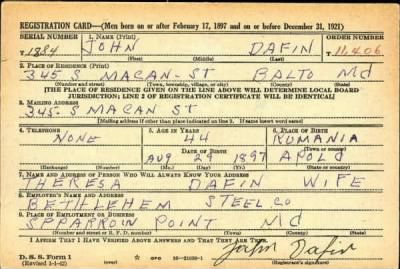 REGISTRATION CARD—(Men born on or after February 17, 1897 and on or before December 31, 1921)
SERIAL NUMBER 1. NAME (Print) ORDER NUMBER
1884 JOHN DAFIN 11,406
(First) (Middle) (Last)
2. PLACE OF RESIDENCE (Print)
345 S MACAN-ST BALTO Md
(Number and street) (Town, township, village, or city) (County) (State)
[THE PLACE OF RESIDENCE GIVEN ON THE LINE ABOVE WILL DETERMINE LOCAL BOARD
JURISDICTION; LINE 2 OF REGISTRATION CERTIFICATE WILL BE IDENTICAL]
3. MAILING ADDRESS
345-S MACAN ST
[Mailing address if other than place indicated on line 2. If same insert word same]
4. TELEPHONE 5. AGE IN YEARS 6. PLACE OF BIRTH
NONE 44 RUMANIA
DATE OF BIRTH (Town or county)
AUG 29 1897 APOLD
(Exchange) (Number) (Mo.) (Day) (Yr.) (State or country)
7. NAME AND ADDRESS OF PERSON WHO WILL ALWAYS KNOW YOUR ADDRESS
THERESA DAFIN WIFE
8. EMPLOYER'S NAME AND ADDRESS
BETHLEHEM STEEL CO
9. PLACE OF EMPLOYMENT OR BUSINESS
SPPARROIN POINT Md
(Number and street or R. F. D. number) (Town) (County) (State)
I AFFIRM THAT I HAVE VERIFIED ABOVE ANSWERS AND THAT THEY ARE TRUE.
D. S. S. Form 1 John Dafin
(Revised 4-1-42) (over) (Registrant's signature)